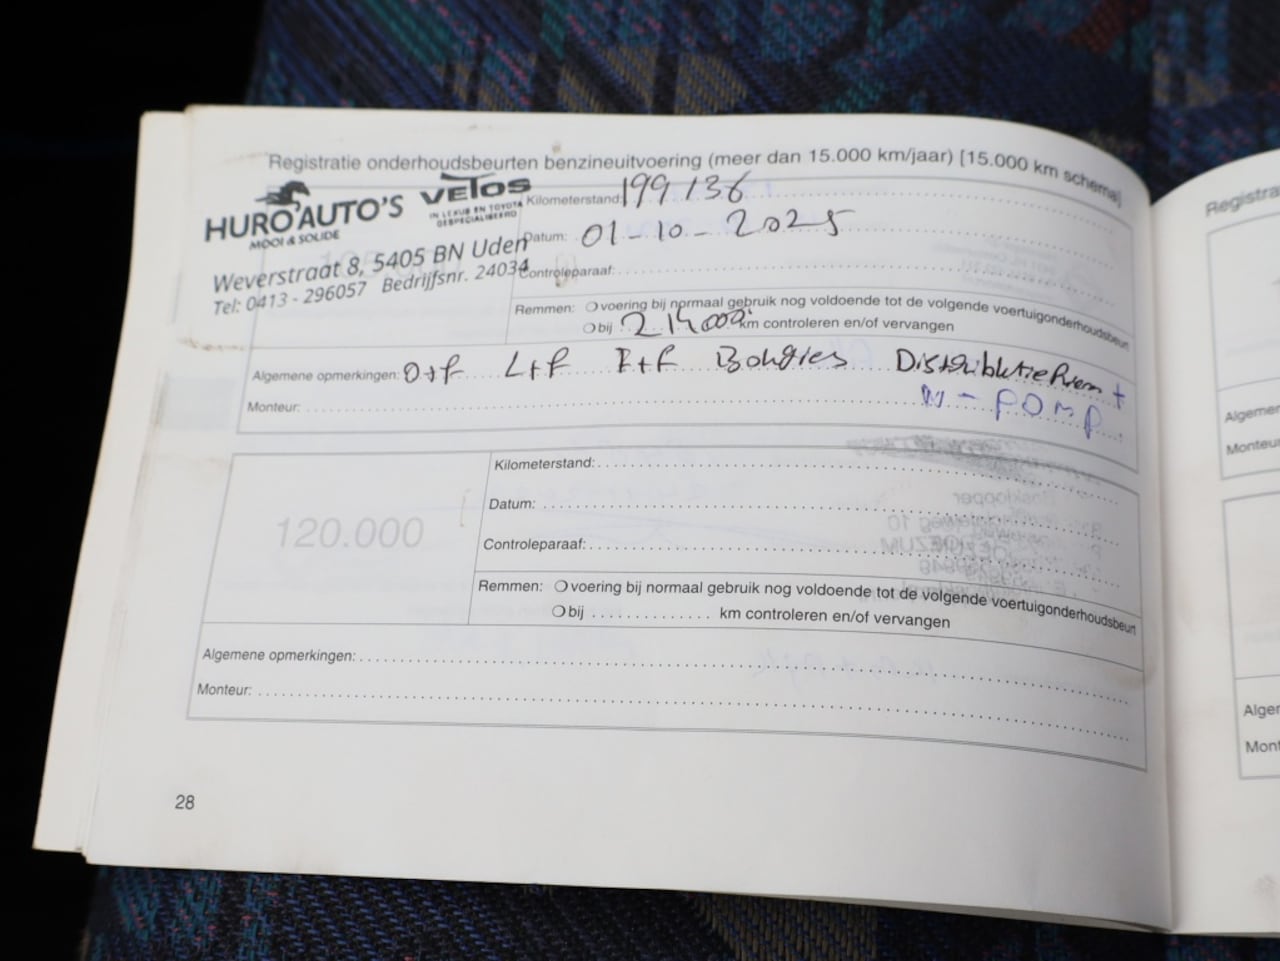 Registratie onderhoudsbeurten benzineuitvoering (meer dan 15.000 km/jaar) [15.000 km schema]
HURO AUTO'S
MOOI & SOLIDE
VETOS
IN LEXUS EN TOYOTA
GESPECIALISEERD
Weverstraat 8, 5405 BN Uden
Tel: 0413 - 296057 Bedrijfsnr. 24034
Kilometerstand: 199136
Datum: 01-10-2025
Controleparaaf:
Remmen: voering bij normaal gebruik nog voldoende tot de volgende voertuigonderhoudsbeurt
bij 214000 km controleren en/of vervangen
Algemene opmerkingen: O+F L+F I+F Bougies Distributieriem +
W-pomp
Monteur:
120.000
Kilometerstand:
Datum:
Controleparaaf:
Remmen: voering bij normaal gebruik nog voldoende tot de volgende voertuigonderhoudsbeurt
bij km controleren en/of vervangen
Algemene opmerkingen:
Monteur:
28
Registra
Algemer
Monteu
Alger
Mont